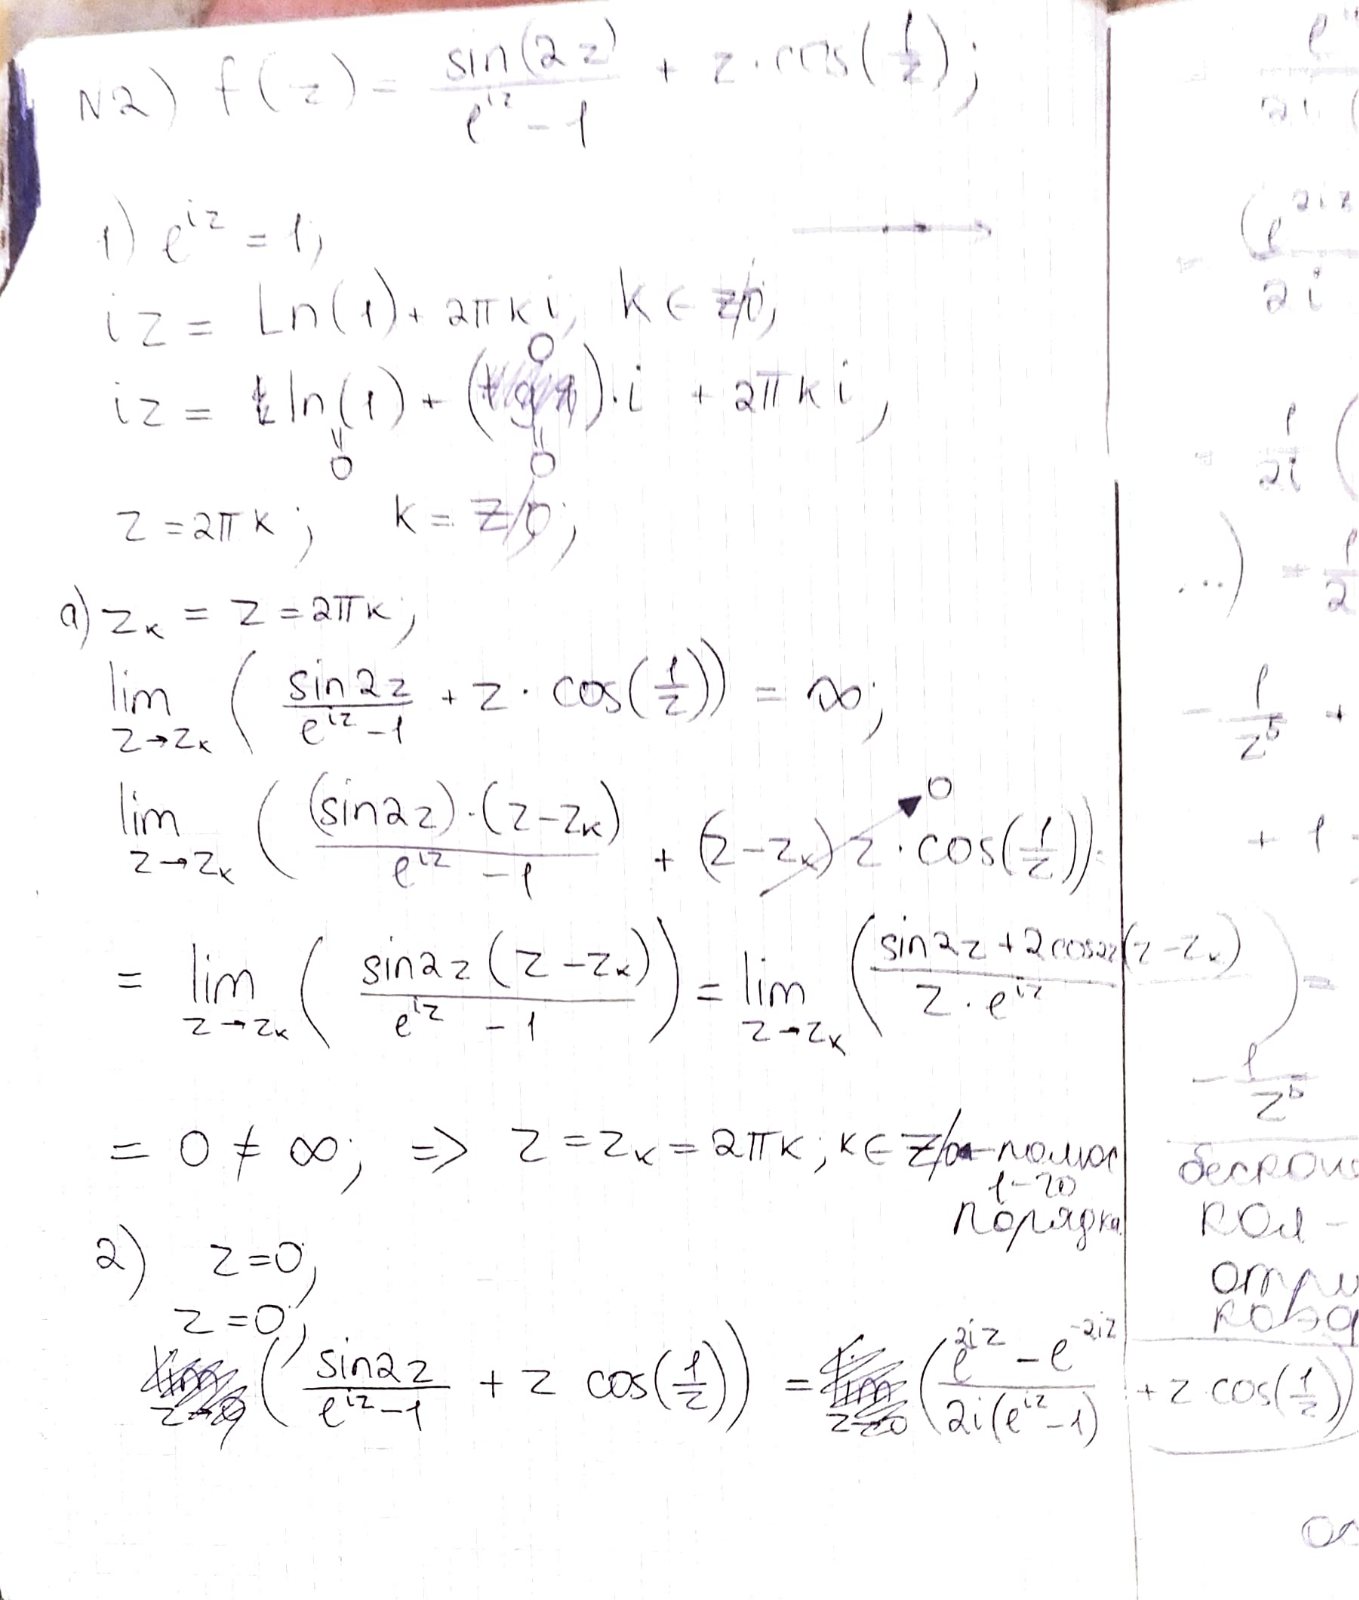 N2) f(z) = sin(2z)/(e^{iz} - 1) + z · cos(1/z);
1) e^{iz} = 1;
iz = Ln(1) + 2πki, k ∈ Z/0;
iz = ln(1) + ( 0 )·i + 2πki;
= 0 = 0
z = 2πk; k = Z/0;
a) z_k = z = 2πk;
lim_{z→z_k} ( sin2z/(e^{iz} - 1) + z · cos(1/z) ) = ∞;
lim_{z→z_k} ( (sin2z)·(z-z_k)/(e^{iz} - 1) + (z-z_k) z · cos(1/z) ) → 0
= lim_{z→z_k} ( sin2z (z-z_k)/(e^{iz} - 1) ) = lim_{z→z_k} ( (sin2z + 2cos2z (z-z_k))/(z · e^{iz}) ) =
= 0 ≠ ∞; => z = z_k = 2πk; k ∈ Z/0 - полюс
1-го
порядка
2) z=0;
z=0;
( sin2z/(e^{iz} - 1) + z cos(1/z) ) = ( (e^{2iz} - e^{-2iz})/(2i(e^{iz} - 1)) + z cos(1/z) )
2i
(e^{2iz}
2i
1/2i (
...) = 1/2
- 1/z^5 +
+ 1
- 1/z^5
кол-